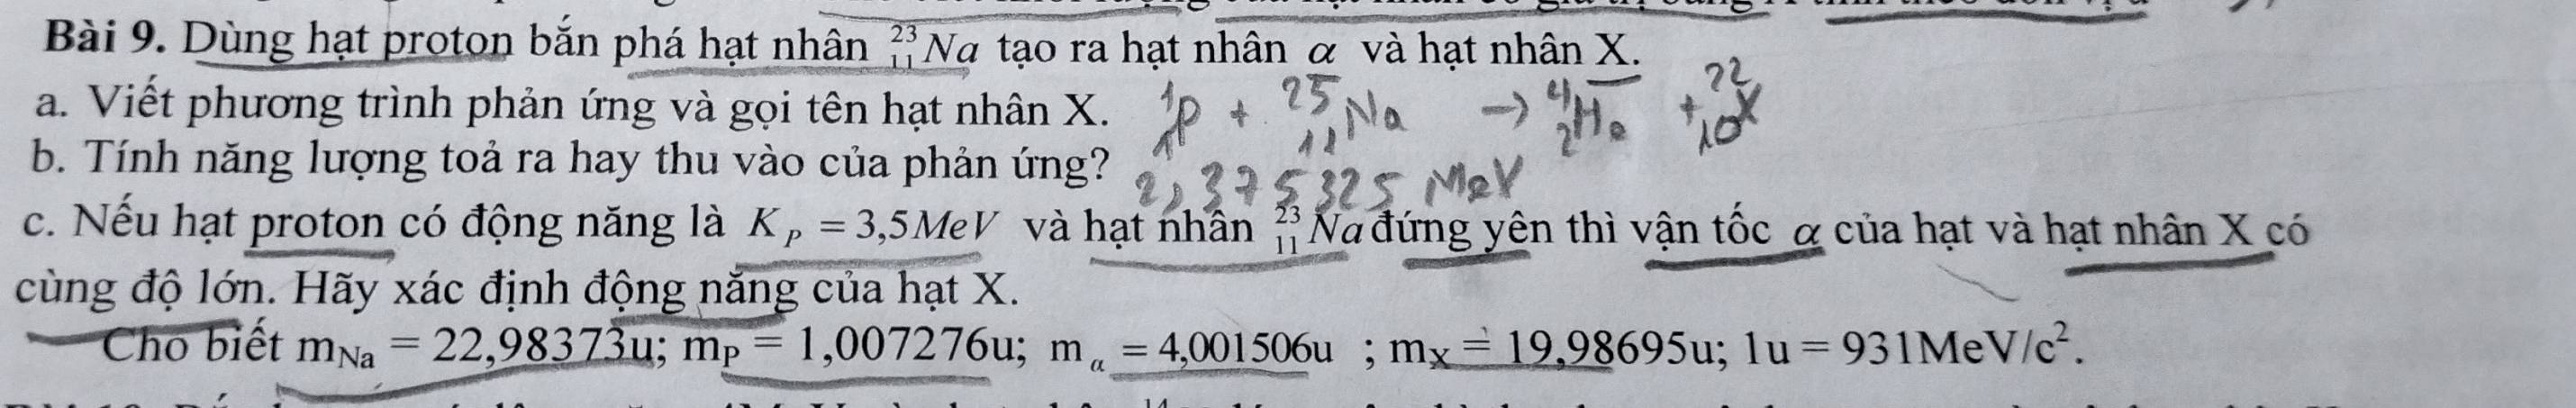 Bài 9. Dùng hạt proton bắn phá hạt nhân ²³₁₁Na tạo ra hạt nhân α và hạt nhân X.
a. Viết phương trình phản ứng và gọi tên hạt nhân X. ¹₁p + ²⁵₁₁Na → ⁴₂He + ²²₁₀X
b. Tính năng lượng toả ra hay thu vào của phản ứng? 2,375325 MeV
c. Nếu hạt proton có động năng là K_P = 3,5MeV và hạt nhân ²³₁₁Na đứng yên thì vận tốc α của hạt và hạt nhân X có
cùng độ lớn. Hãy xác định động năng của hạt X.
Cho biết m_Na = 22,98373u; m_P = 1,007276u; m_α = 4,001506u ; m_X = 19,98695u; 1u = 931MeV/c².